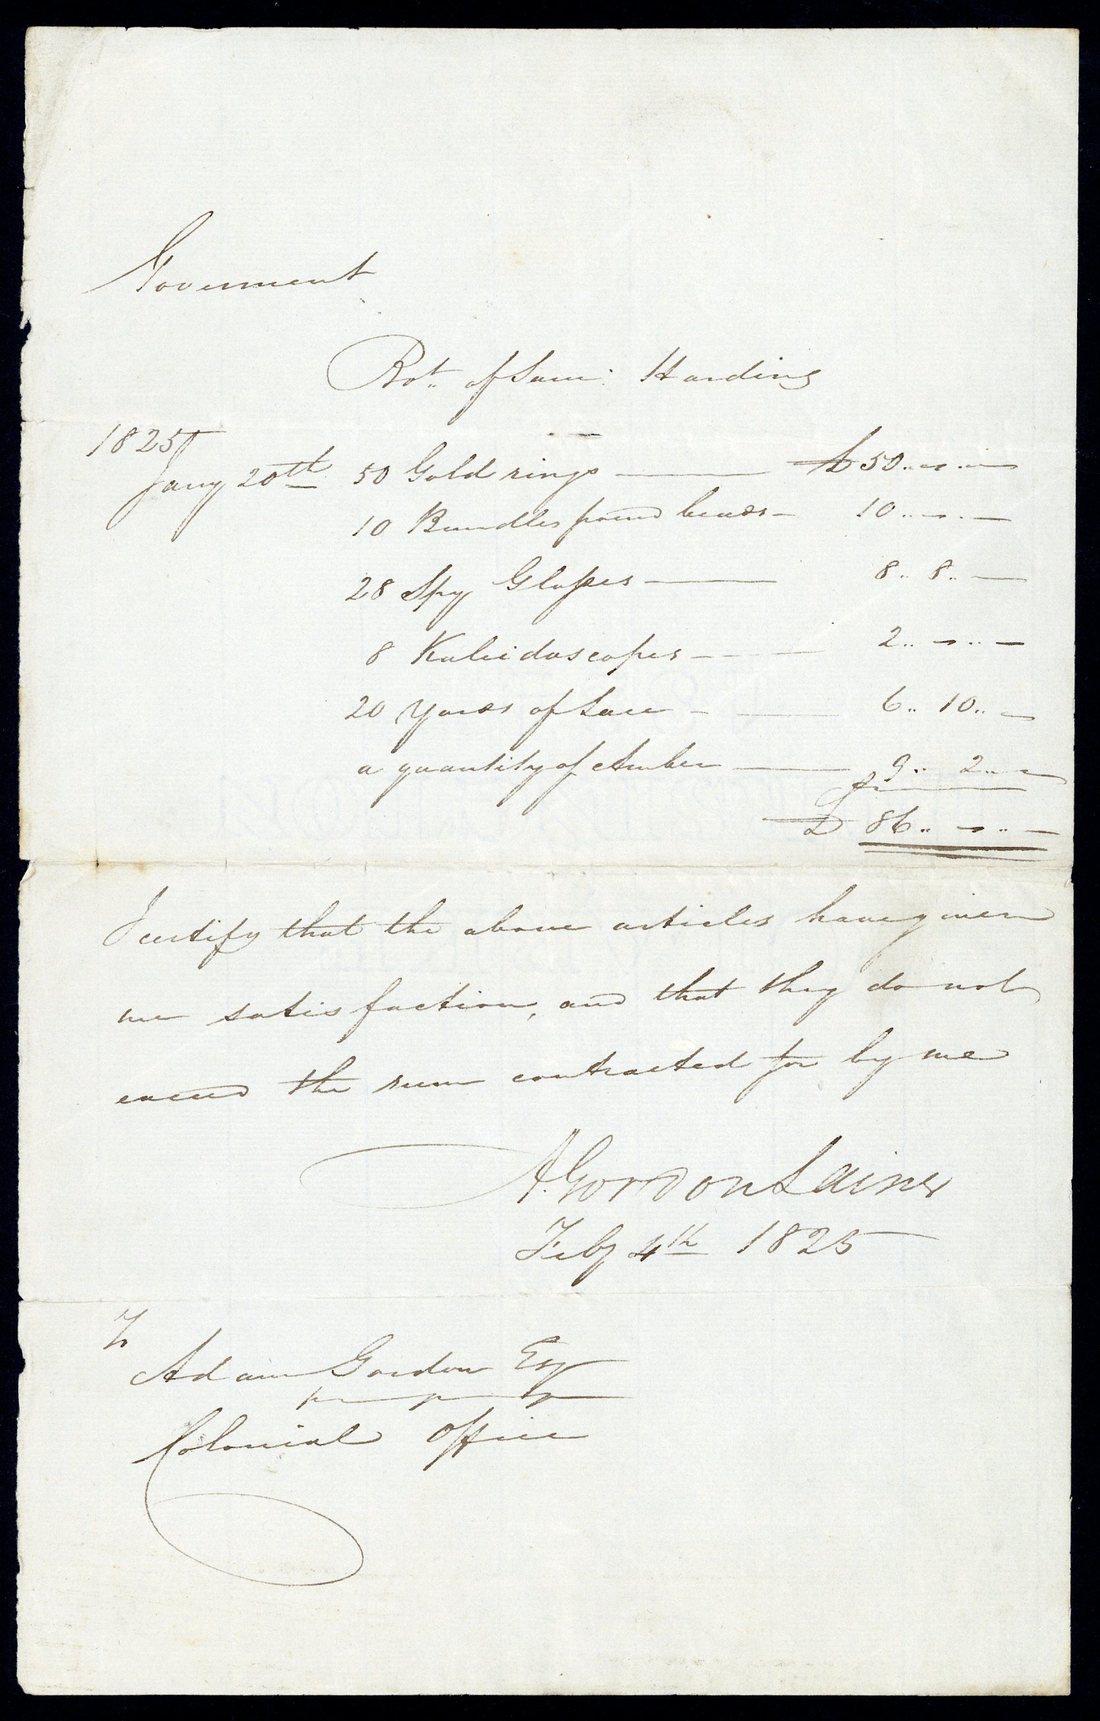 Goverment
Bot. of Sam: Harding
1825
Jany 20th 50 Gold rings £ 50 .. - .. -
10 Bundles pound beads 10 .. - .. -
28 Spy Glasses 8 .. 8 .. -
8 Kaleidoscopes 2 .. - .. -
20 Yards of Lace 6 .. 10 .. -
a quantity of Amber 9 .. 2 .. -
£ 86 .. - .. -
I certify that the above articles have given
me satisfaction, and that they do not
exceed the sum contracted for by me
A. Gordon Laing
Feby 4th 1825
To
Adam Gordon Esq
Colonial Office